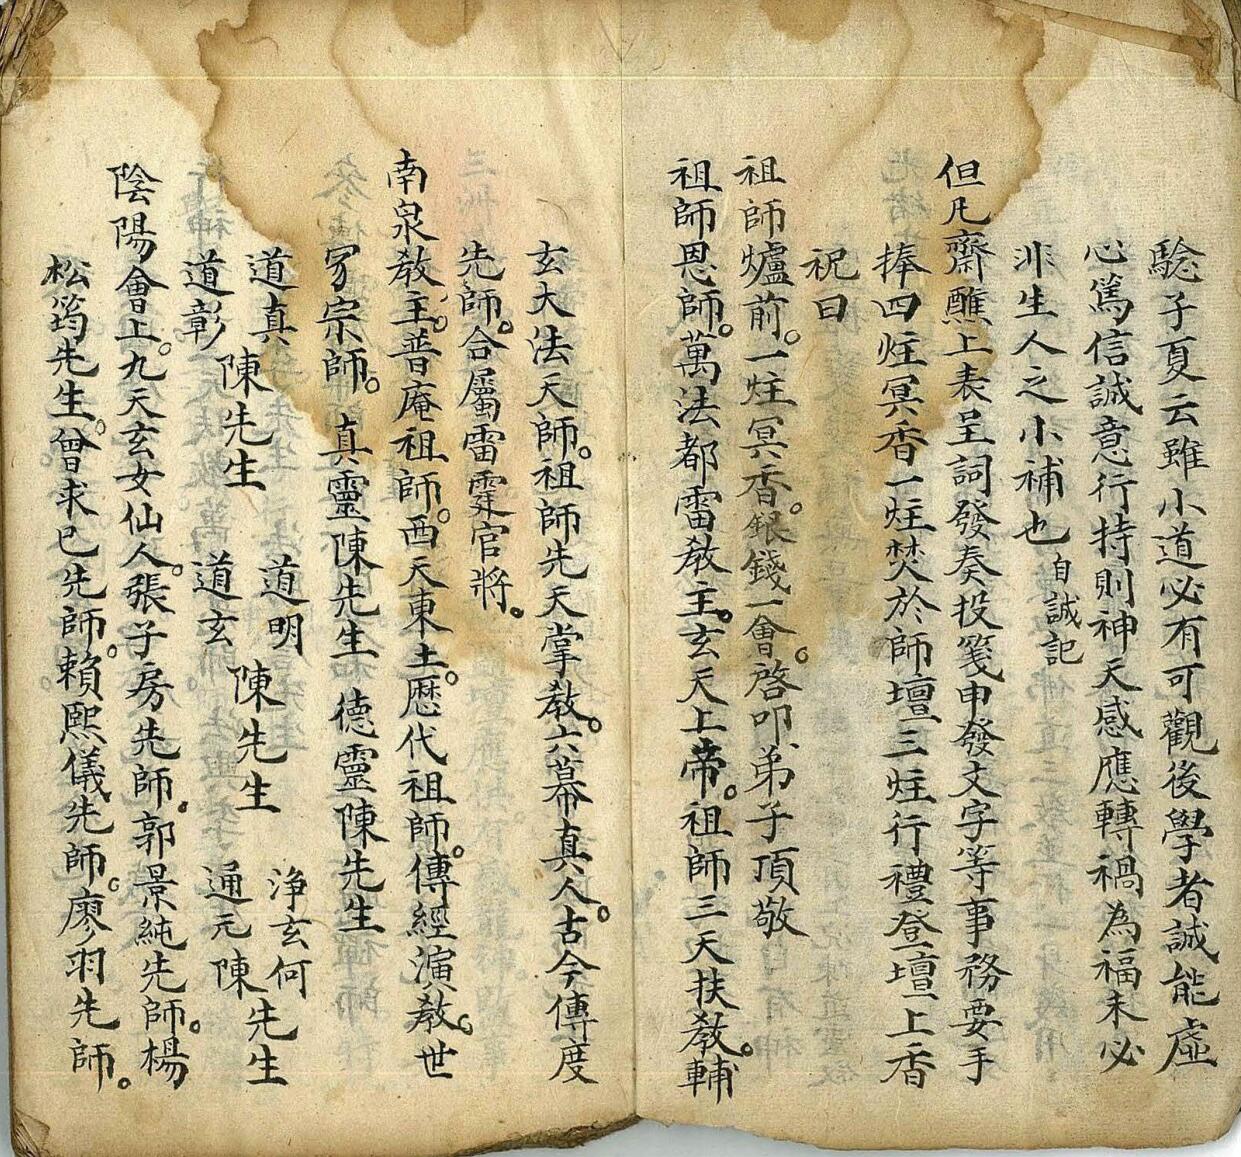 騐子夏云雖小道必有可觀後學者誠能虛
心篤信誠意行持則神天感應轉禍為福未必
非生人之小補也 自誠記
但凡齋醮上表呈詞發奏投箋申發文字等事務要手
捧四炷冥香一炷焚於師壇三炷行禮登壇上香
祝曰
祖師爐前。一炷冥香。銀錢一會。啓叩弟子頂敬
祖師恩師。萬法都雷教主。玄天上帝。祖師三天扶教。輔
玄大法天師。祖師先天掌教。六幕真人。古今傳度
先師。合屬雷霆官將。
南泉教主。普庵祖師。西天東土。歷代祖師。傳經演教。世
冢宗師。真靈陳先生 德靈陳先生
道真 道明 淨玄何
陳先生 陳先生 先生
道彰 道玄 通元陳
陰陽會上。九天玄女仙人。張子房先師。郭景純先師。楊
松筠先生。曾求已先師。賴熙儀先師。廖羽先師。